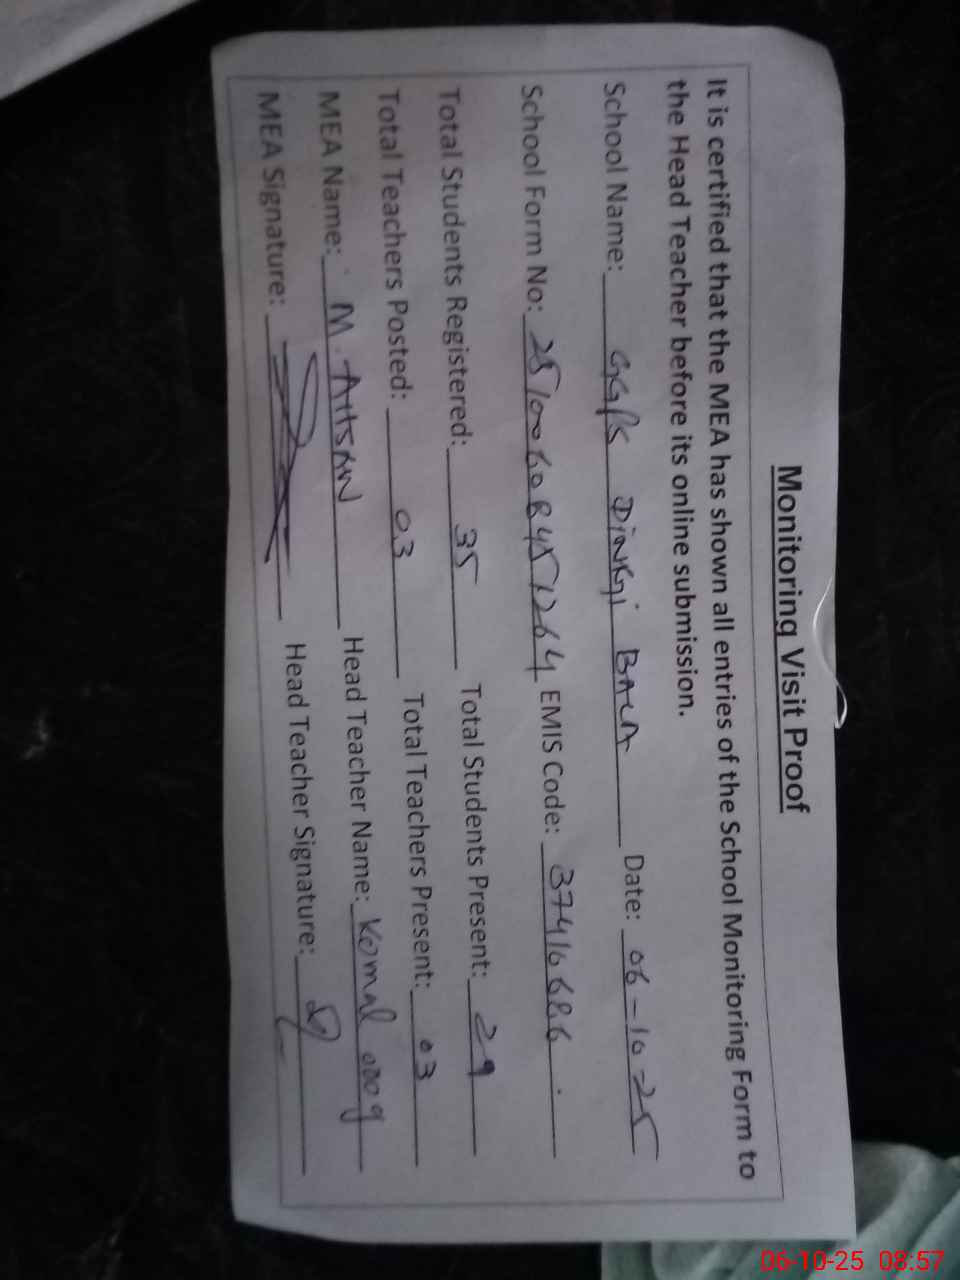 Monitoring Visit Proof
It is certified that the MEA has shown all entries of the School Monitoring Form to
the Head Teacher before its online submission.
School Name: GGPS DiNGi BALA Date: 06-10-25
School Form No: EMIS Code: 37410686
Total Students Registered: 35 Total Students Present: 29
Total Teachers Posted: 03 Total Teachers Present: 03
MEA Name: M. AHSAN Head Teacher Name: Komal
MEA Signature: Head Teacher Signature:
06-10-25 08:57